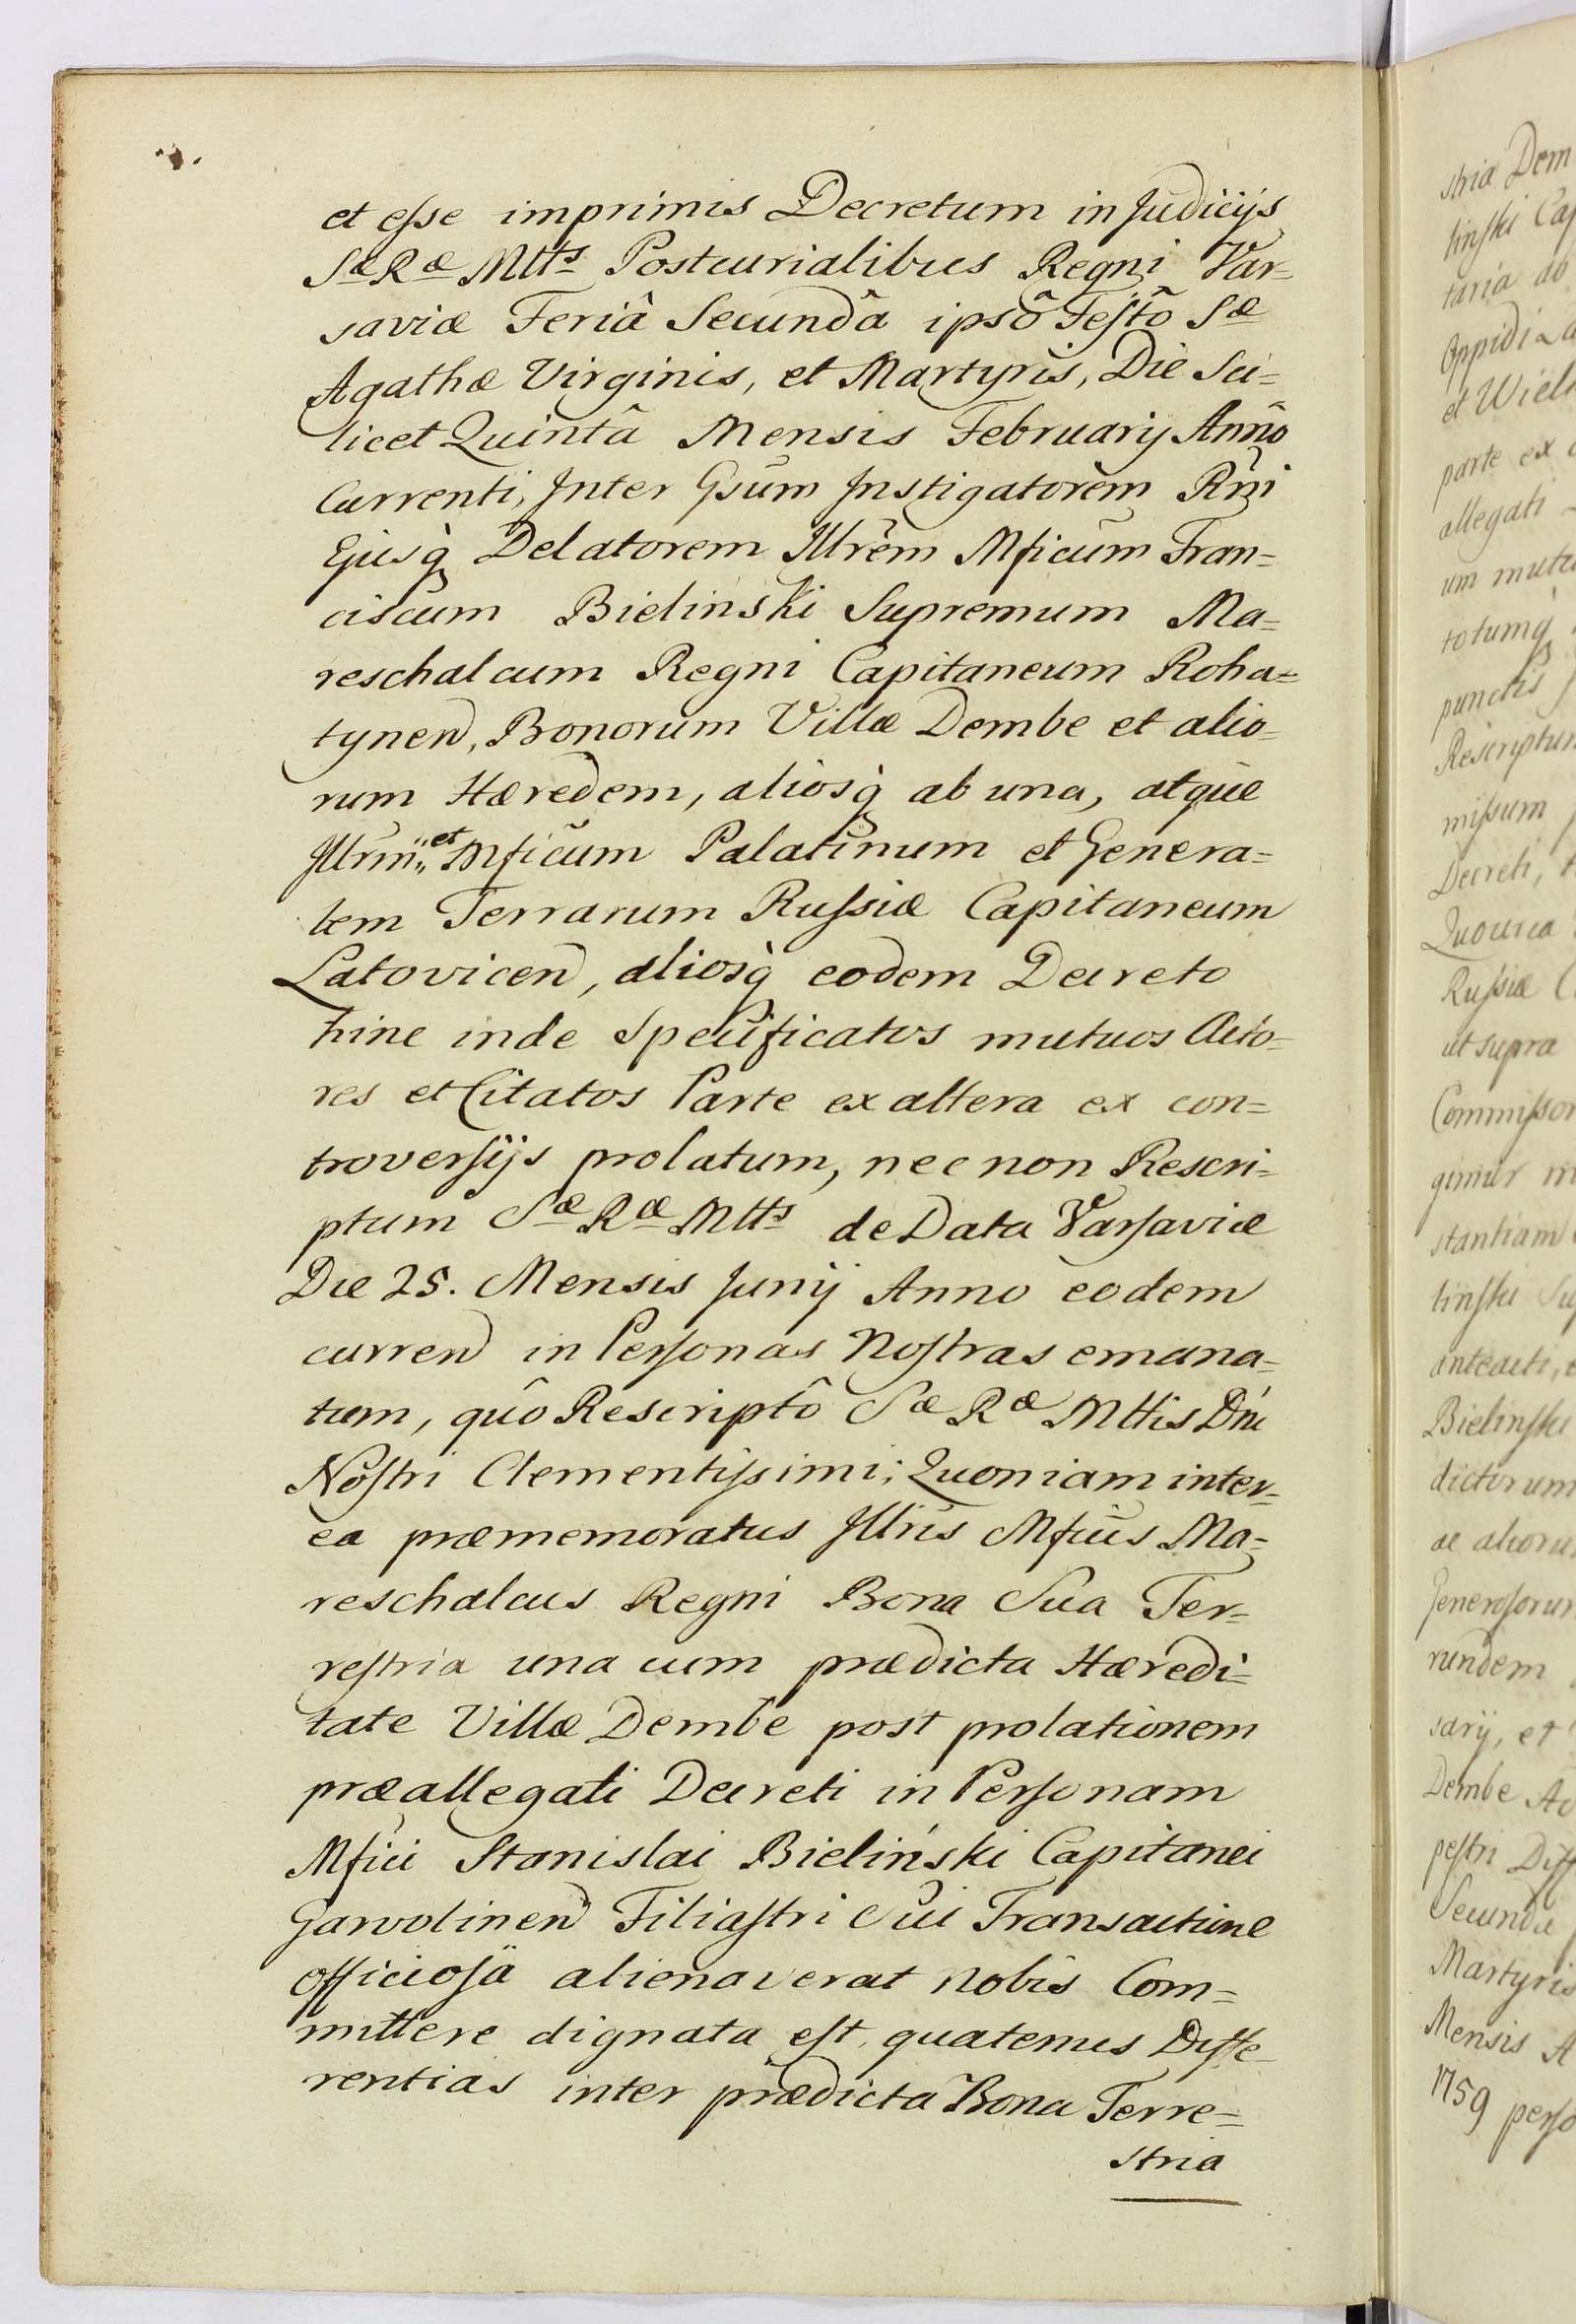 et esse imprimis Decretum in Judicijs
Sæ Ræ Mtts Postcurialibus Regni Var=
saviæ Feriâ Secundâ ipsô Festô Sæ
Agathæ Virginis, et Martyris, Die Sci=
licet Quintâ Mensis Februarij Annô
Currenti, Inter Gsum Instigatorem Rni
Ejusq̀ Delatorem Illrem Mficum Fran=
ciscum Bielinski Supremum Ma=
reschalcum Regni Capitaneum Roha=
tynen, Bonorum Villæ Dembe et alio=
rum Hæredem, aliosq̀ ab una, atque
Illrm et Mficum Palatinum et Genera=
lem Terrarum Russiæ Capitaneum
Latovicen, aliosq̀ eodem Decreto
hinc inde Specificatos mutuos Acto=
res et Citatos Parte ex altera ex con=
troversijs prolatum, nec non Rescri=
ptum Sæ Ræ Mtts de Data Varsaviæ
Die 25. Mensis Junij Anno eodem
curren in Personas Nostras emana=
tum, quô Rescriptô Sæ Ræ Mttis Dni
Nostri Clementissimi; Quoniam inter=
ea præmemoratus Illris Mficus Ma=
reschalcus Regni Bona Sua Ter=
restria una cum prædicta Hæredi=
tate Villæ Dembe post prolationem
præallegati Decreti in Personam
Mfici Stanislai Bieliński Capitanei
Garvolinen Filiastri Sui Transactione
officiosa alienaverat nobis Com=
mittere dignata est, quatenus Diffe=
rentias inter prædicta Bona Terre=
stria
stria Dem
linski Cap
taria ab
Oppidi La
et Wiel
parte ex
allegati
um mutu
totumq̀
punctis
Rescriptum
missum
Decreti,
Quocirca
Russiæ C
ut supra
Commissor
stantiam
linski Su
anteacti,
Bielinski
dictorum
ac alioru
Generosorum
rundem
sarij, et
Dembe
pestri Diff
Secunda
Martyris
Mensis A
1759 perso